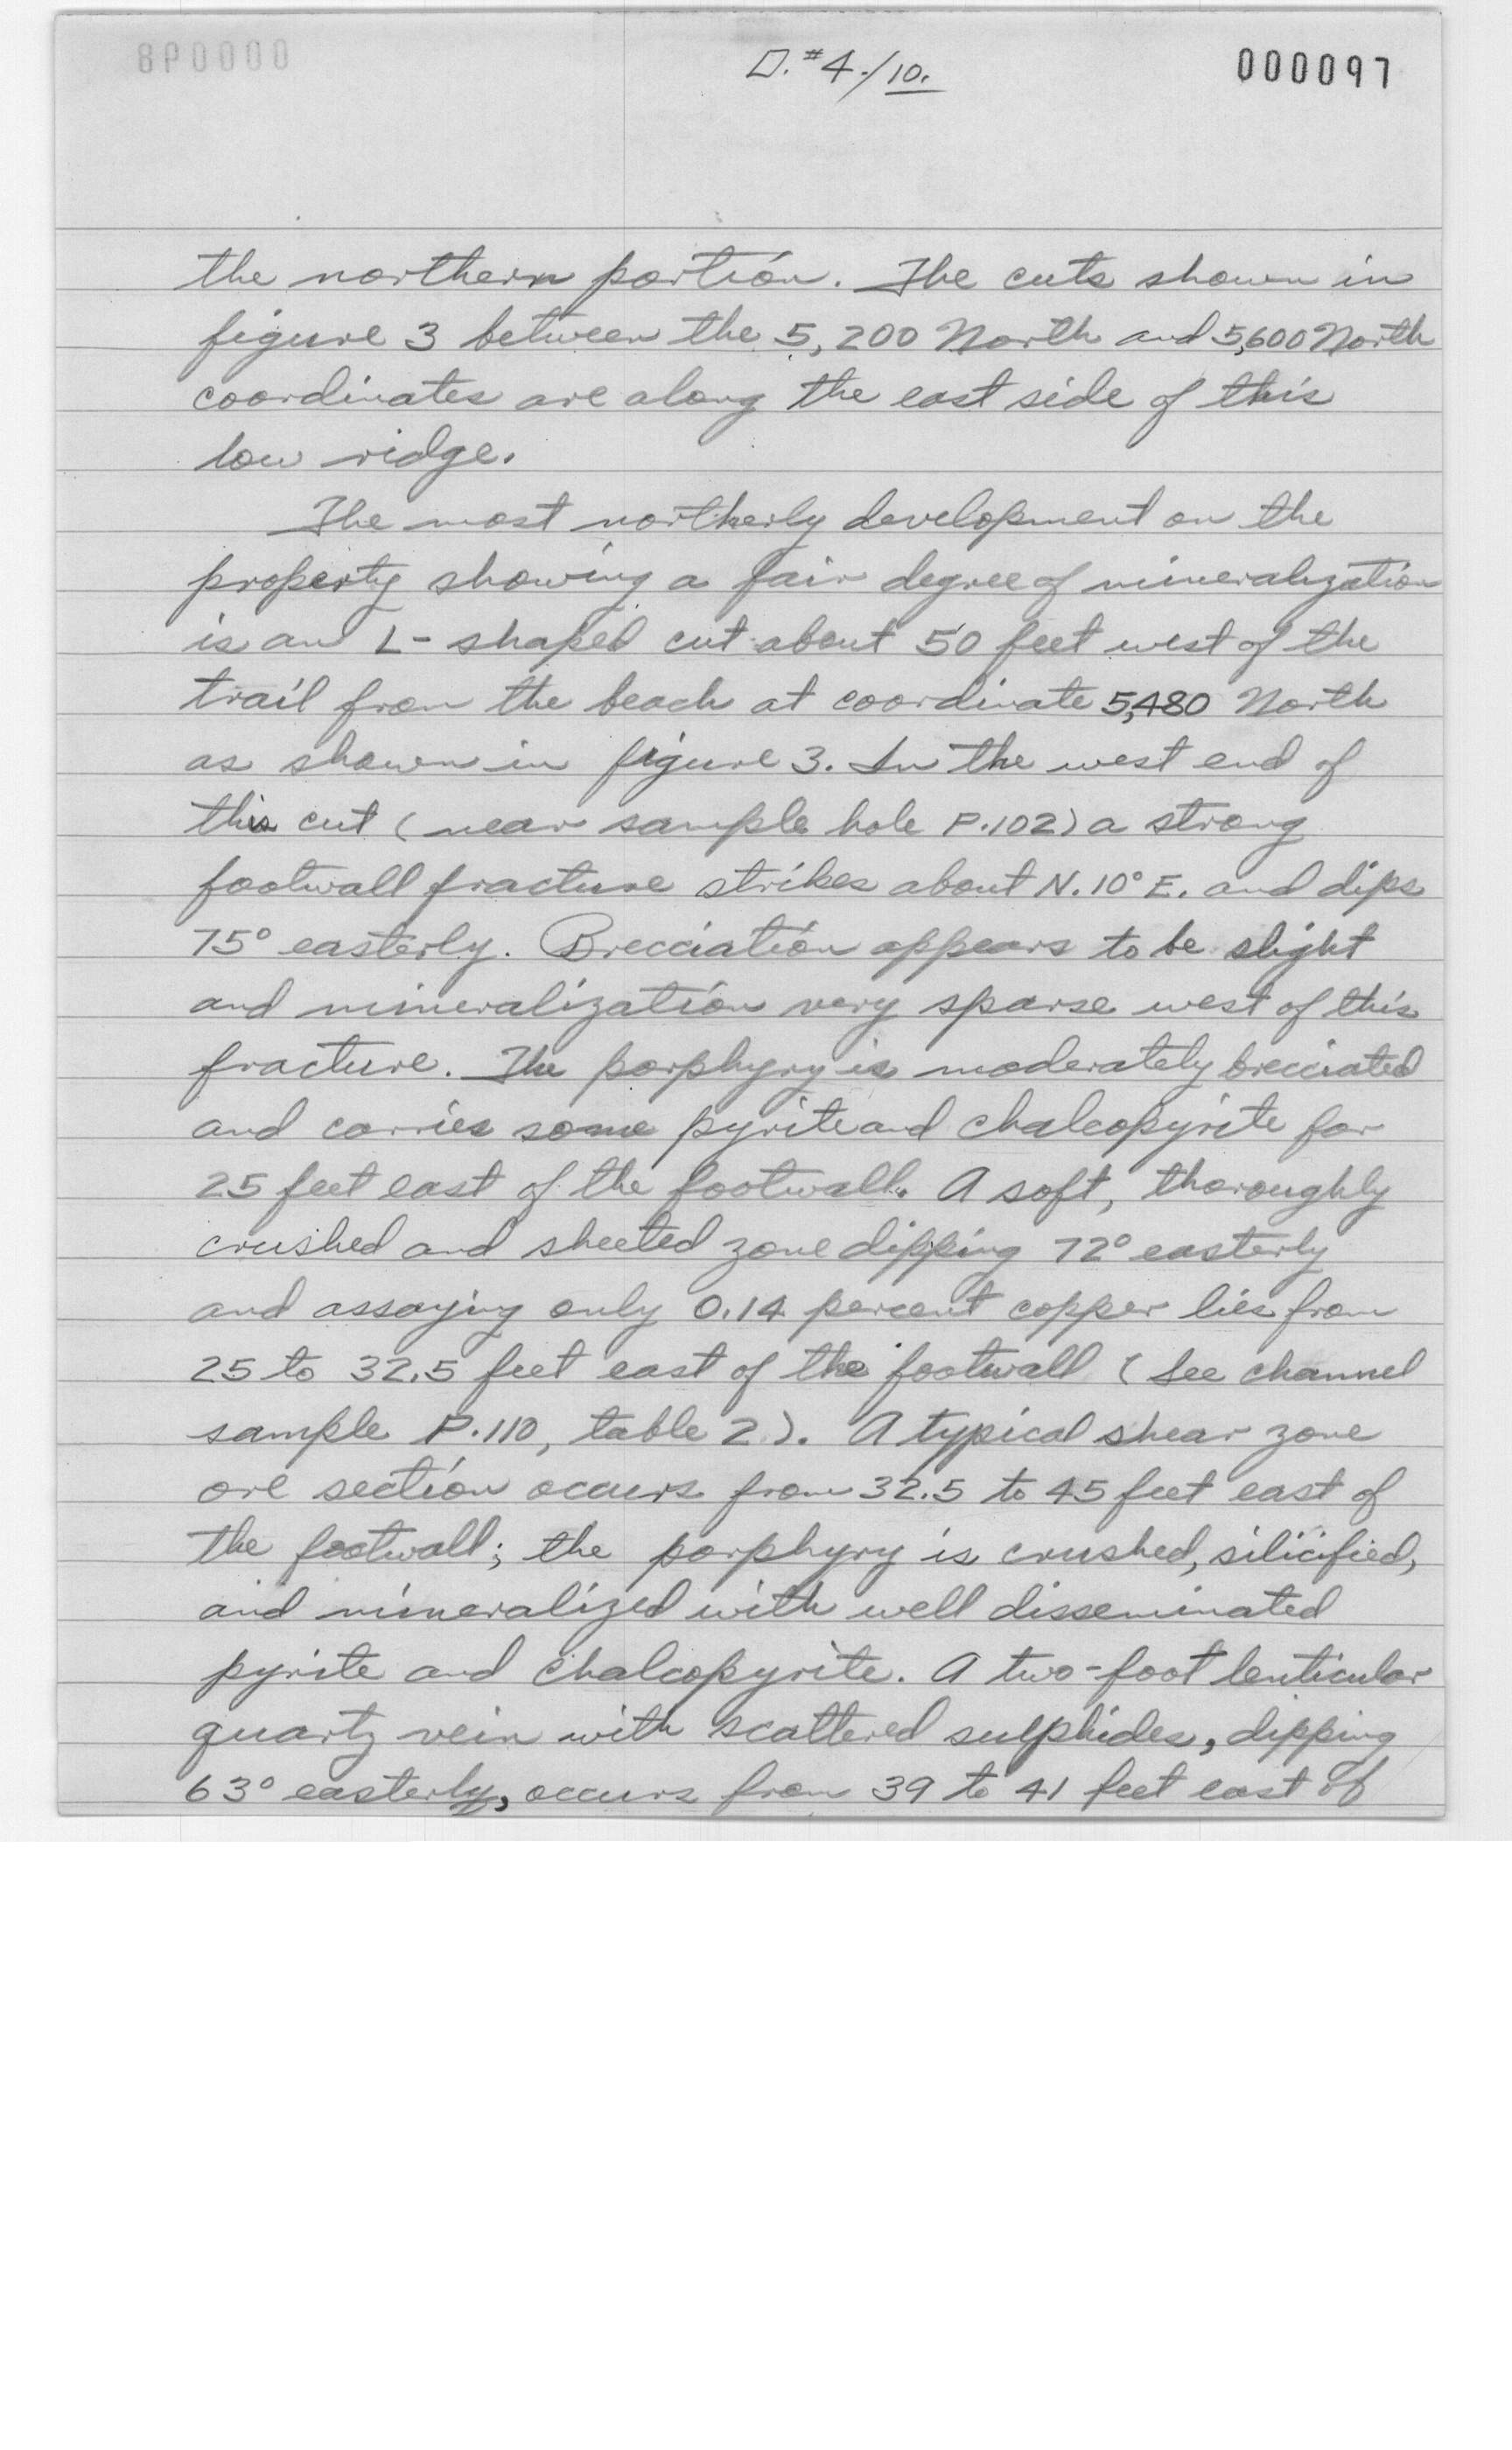 D. #4./10.
000097
the northern portion. The cuts shown in
figure 3 between the 5,200 North and 5,600 North
coordinates are along the east side of this
low ridge.
The most northerly development on the
property showing a fair degree of mineralization
is an L-shaped cut about 50 feet west of the
trail from the beach at coordinate 5,480 North
as shown in figure 3. In the west end of
this cut (near sample hole P.102) a strong
footwall fracture strikes about N.10° E. and dips
75° easterly. Brecciation appears to be slight
and mineralization very sparse west of this
fracture. The porphyry is moderately brecciated
and carries some pyrite and chalcopyrite for
25 feet east of the footwall. A soft, thoroughly
crushed and sheeted zone dipping 72° easterly
and assaying only 0.14 percent copper lies from
25 to 32.5 feet east of the footwall (See channel
sample P.110, table 2). A typical shear zone
ore section occurs from 32.5 to 45 feet east of
the footwall; the porphyry is crushed, silicified,
and mineralized with well disseminated
pyrite and chalcopyrite. A two-foot lenticular
quartz vein with scattered sulphides, dipping
63° easterly, occurs from 39 to 41 feet east of